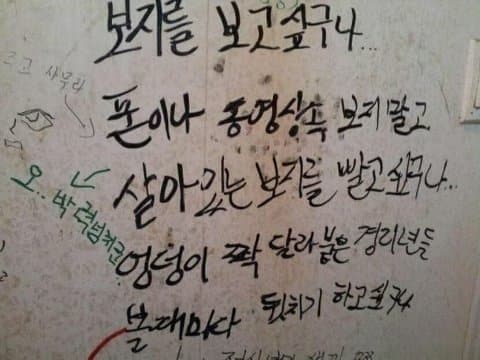 보지를 보고싶구나...
폰이나 동영상속 보지말고
살아있는 보지를 빨고싶구나...
오.. 박력넘쳐군
엉덩이 짝 달라붙은 경리년들
볼때마다 뒷치기 하고싶구나